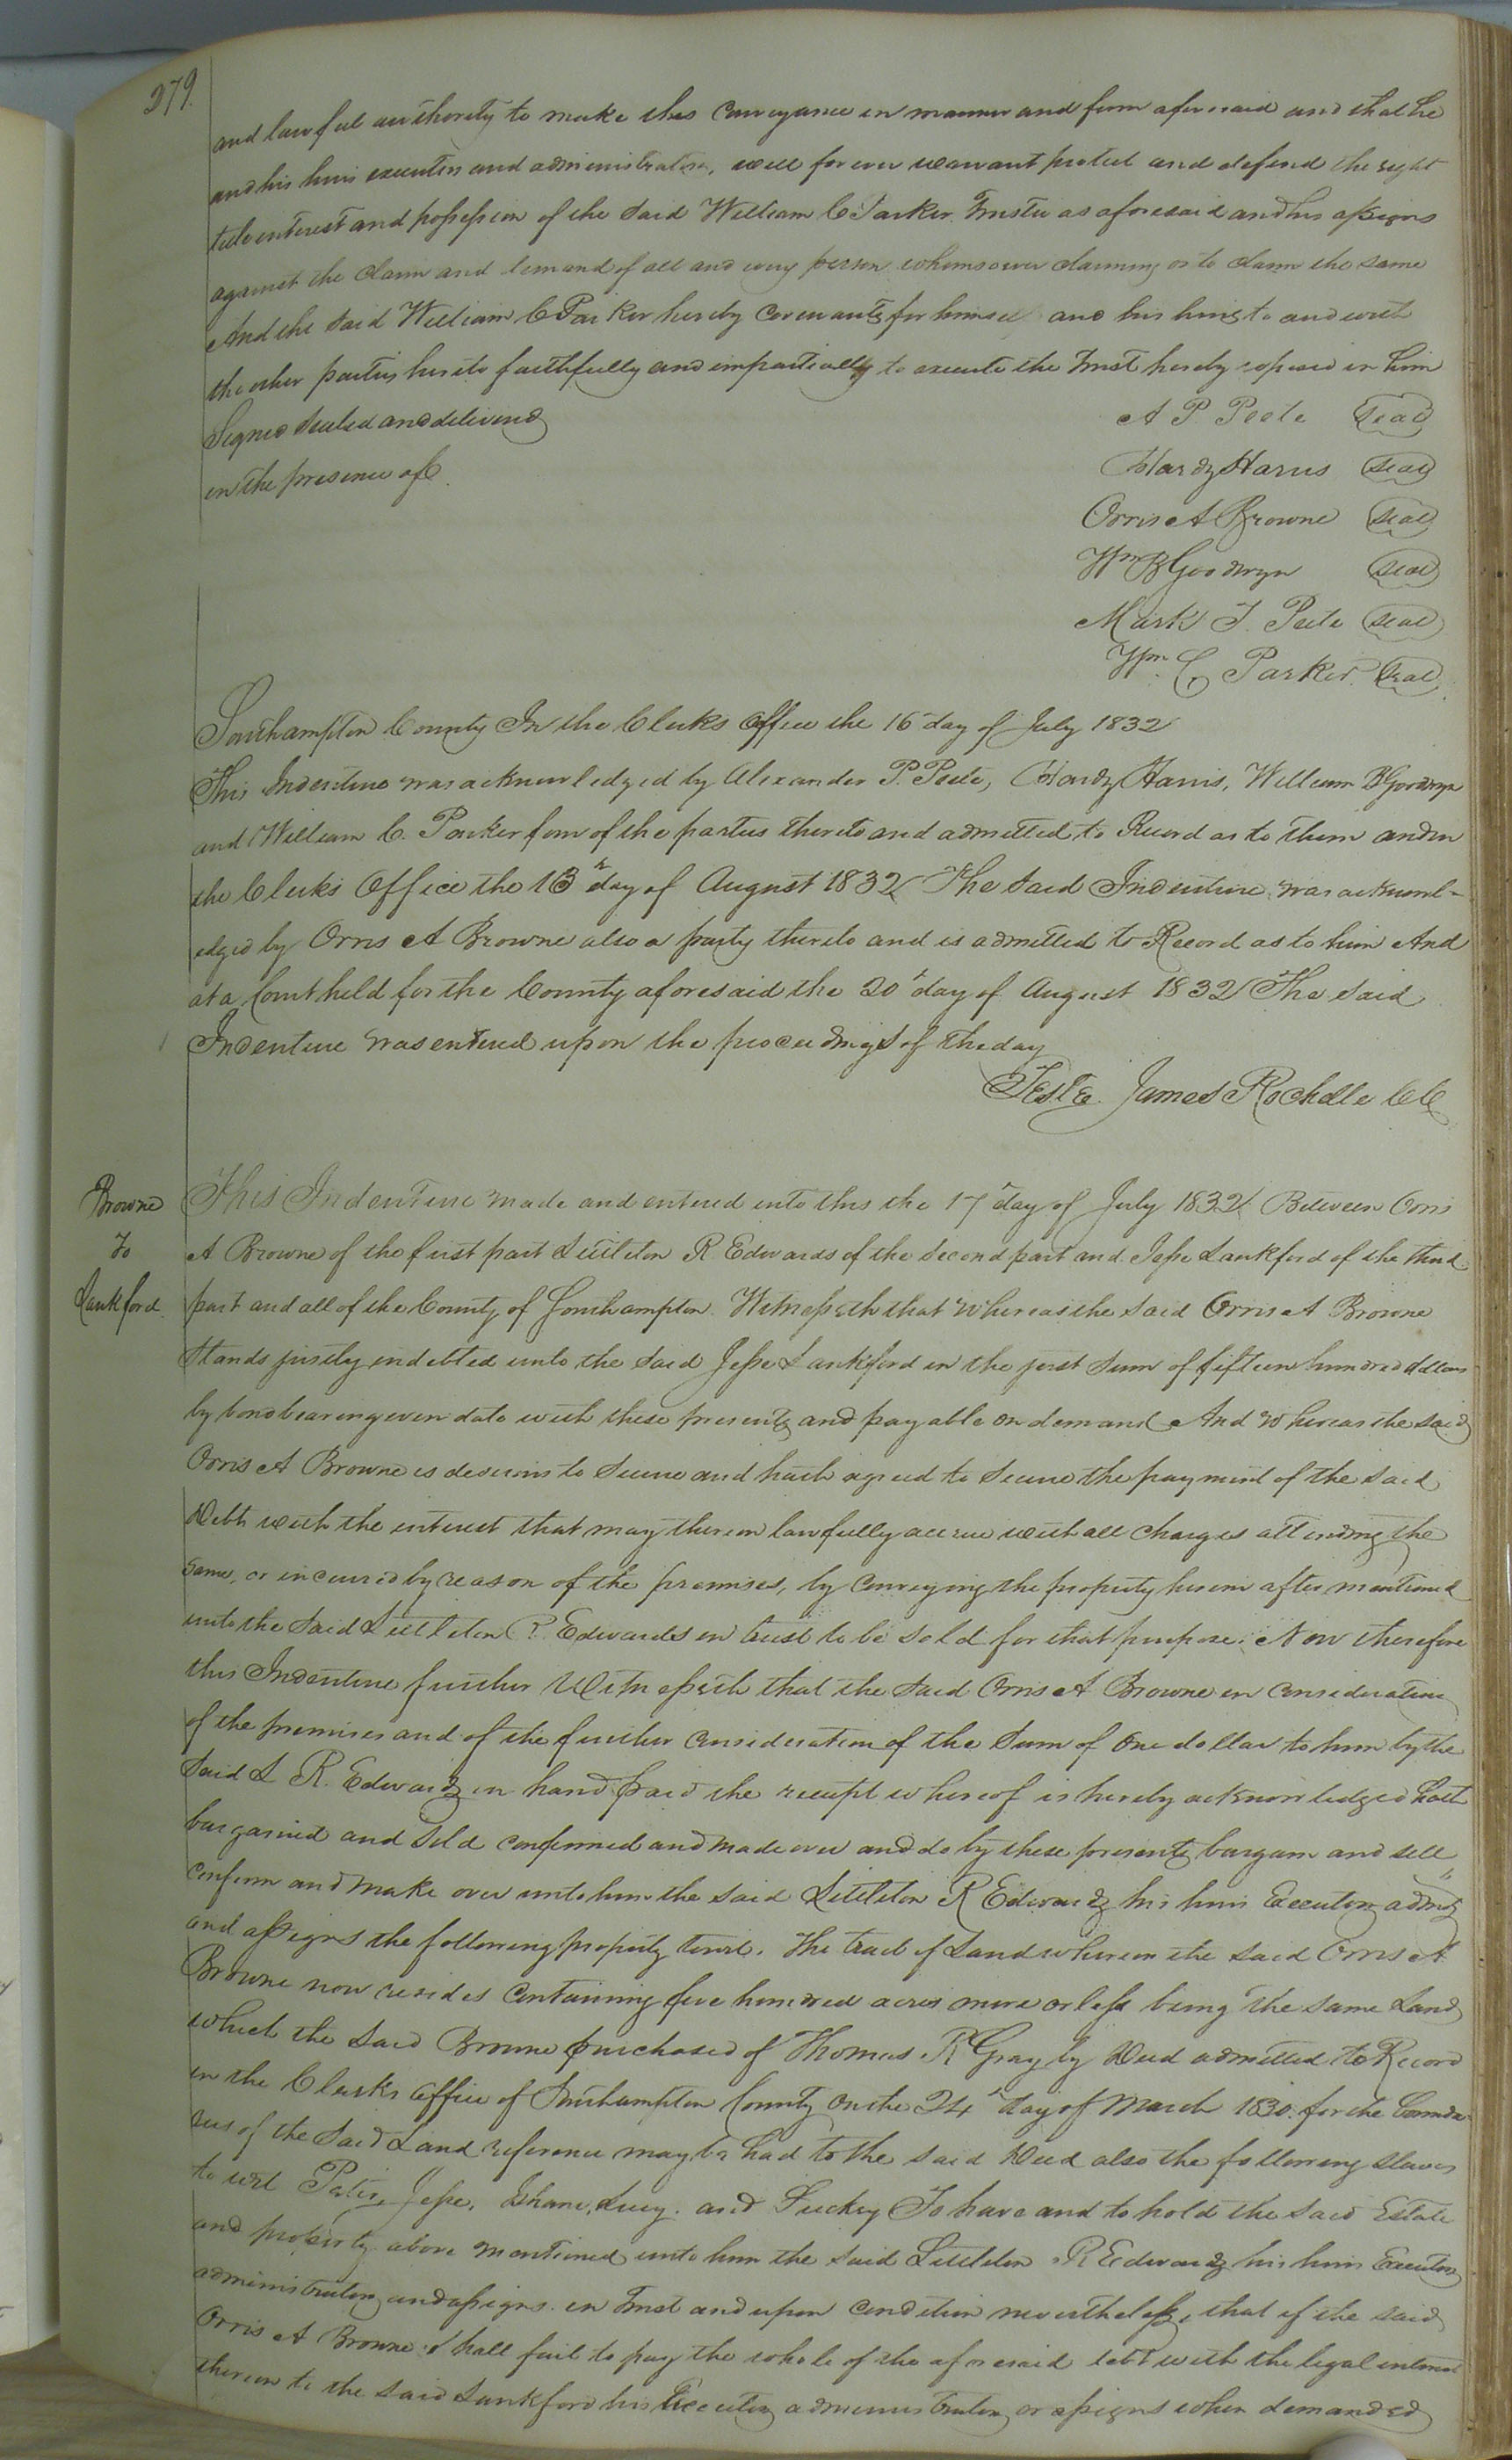 279.
and lawful authority to make this Conveyance in manner and form aforesaid and that he
and his heirs executors and administrators, will forever warrant protect and defend the right
title interest and possession of the said William C Parker Trustee as aforesaid and his assigns
against the claim and demand of all and every person whomsoever claiming or to claim the same
And the said William C Parker hereby Covenants for himself and his heirs to and with
the other parties hereto faithfully and impartially to execute the Trust hereby reposed in him
Signed Sealed and delivered
in the presence of
A P. Peete Seal
Hardy Harris Seal
Orris A Browne Seal
Wm B Goodwyn Seal
Mark J. Peete Seal
Wm. C Parker Seal
Southampton County In the Clerks Office the 16 day of July 1832
This Indenture was acknowledged by Alexander P. Peete, Hardy Harris, William B Goodwyn
and William C. Parker four of the parties thereto and admitted to Record as to them and in
the Clerks Office the 13th day of August 1832 The said Indenture was acknowl-
edged by Orris A Browne also a party thereto and is admitted to Record as to him And
at a Court held for the County aforesaid the 20th day of August 1832 The said
Indenture was entered upon the proceedings of the day
Teste. James Rochelle CC
Browne
To
Lankford
This Indenture made and entered into this the 17th day of July 1832 Between Orris
A Browne of the first part Littleton R Edwards of the second part and Jesse Lankford of the third
part and all of the County of Southampton. Witnesseth that whereas the said Orris A Browne
Stands justly indebted unto the said Jesse Lankford in the just sum of fifteen hundred dollars
by bond bearing even date with these presents and payable on demand And whereas the said
Orris A Browne is desirous to Secure and hath agreed to Secure the payment of the said
Debt with the interest that may thereon lawfully accrue with all charges attending the
same, or incurred by reason of the premises, by conveying the property herein after mentioned
unto the said Littleton R. Edwards in trust to be sold for that purpose. Now therefore
this Indenture further Witnesseth that the said Orris A Browne in consideration
of the premises and of the further consideration of the Sum of One dollar to him by the
said L R. Edwards in hand paid the receipt whereof is hereby acknowledged hath
bargained and sold confirmed and made over and do by these presents bargain and sell
confirm and make over unto him the said Littleton R Edwards his heirs Executors admrs
and assigns the following property towit. The tract of Land whereon the said Orris A
Browne now resides Containing five hundred acres more or less being the same Land
which the said Browne purchased of Thomas R Gray by Deed admitted to Record
in the Clerks Office of Southampton County on the 24th day of March 1830. for the bounda-
ries of the said Land reference may be had to the said Deed also the following slaves
to wit Jesse, Lucy. and Suckey To have and to hold the said Estate
and property above mentioned unto him the said Littleton R Edwards his heirs Executors
administrators and assigns. in Trust and upon condition nevertheless, that if the said
Orris A Browne shall fail to pay the whole of the aforesaid debt with the legal interest
thereon to the said Lankford his Executors administrators or assigns when demanded